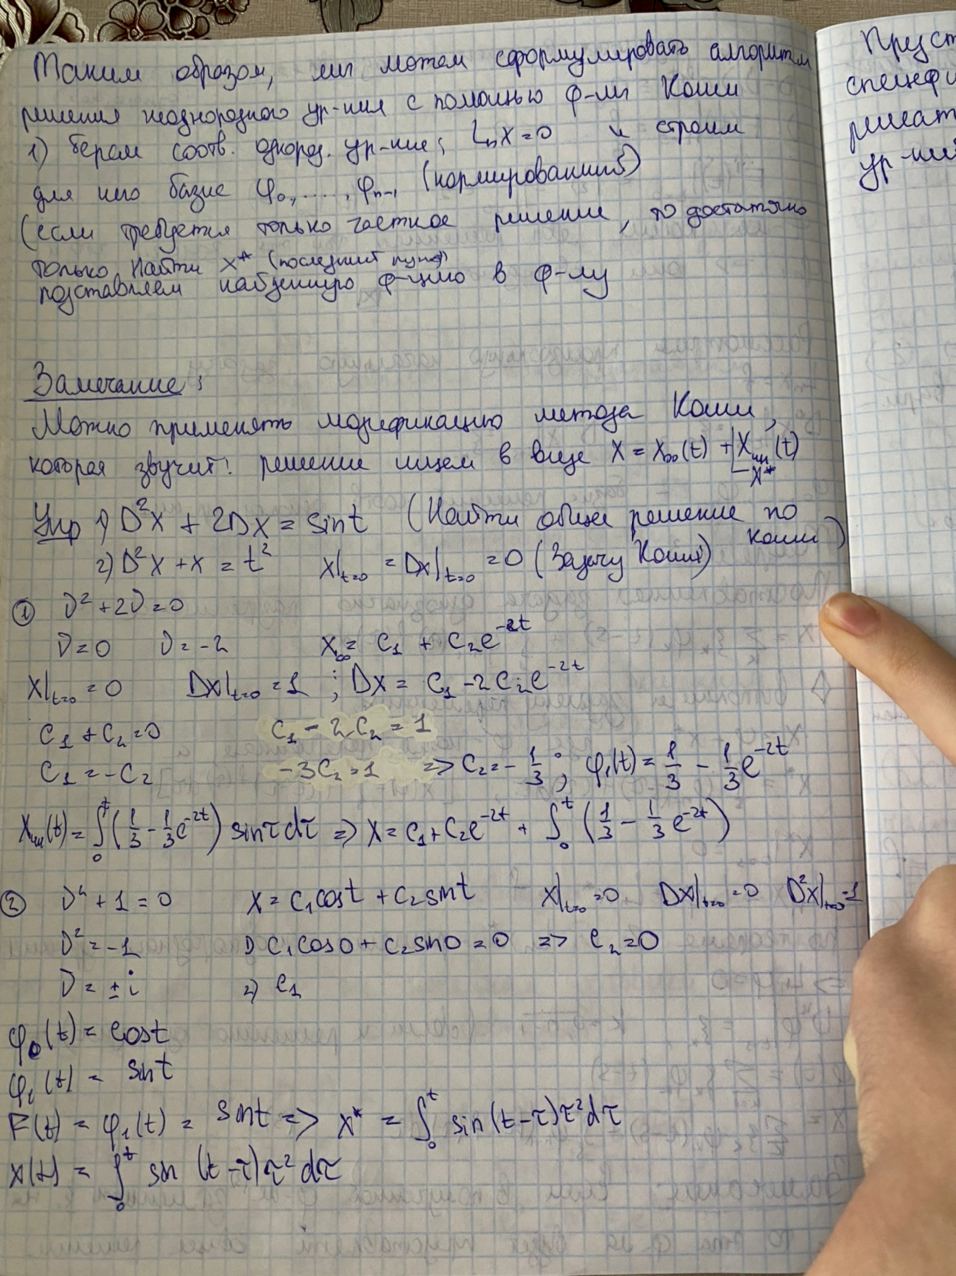 Таким образом, мы можем сформулировать алгоритм
решения неоднородного ур-ния с помощью ф-лы Коши
1) берем соотв. однород. ур-ние; LₙX=0 и строим
для него базис φ₀,....,φₙ₋₁ (нормированный)
(если требуется только частное решение, то достаточно
только найти x* (последний пункт)
подставляем найденную ф-цию в ф-лу
Замечание:
Можно применять модификацию метода Коши,
которая звучит: решение ищем в виде X = X₀₀(t) + Xчн(t)
x*
Упр 1) D²X + 2DX = sint (Найти общее решение по
Коши)
2) D²X + X = t² X|t=0 = DX|t=0 = 0 (Задачу Коши)
① ν² + 2ν = 0
ν = 0 ν = -2 X₀₀ = C₁ + C₂e⁻²ᵗ
X|t=0 = 0 DX|t=0 = 1 ; DX = C₁ - 2C₂e⁻²ᵗ
C₁ + C₂ = 0 C₁ - 2C₂ = 1
C₁ = -C₂ -3C₂ = 1 => C₂ = -1/3 ; φ₁(t) = 1/3 - 1/3 e⁻²ᵗ
Xчн(t) = ∫₀ᵗ (1/3 - 1/3 e⁻²ᵗ) sinτdτ => X = C₁ + C₂e⁻²ᵗ + ∫₀ᵗ (1/3 - 1/3 e⁻²ᵗ)
② ν⁴ + 1 = 0 X = C₁cost + C₂sint X|t=0 = 0 DX|t=0 = 0 D²X|t=0 = 1
ν² = -1 1) C₁cos0 + C₂sin0 = 0 => C₂ = 0
ν = ± i 2) C₁
φ₀(t) = cost
φ₁(t) = sint
F(t) = φ₁(t) = sint => X* = ∫₀ᵗ sin(t-τ)τ²dτ
X(t) = ∫₀ᵗ sin (t-τ)τ² dτ
Пуст
специфи
решат
ур-ний